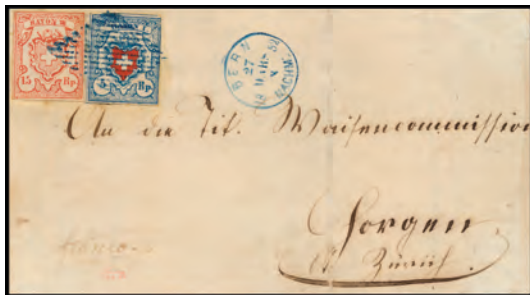 RAYON
15 Rp.
5 Rp.
BERN
27 MÄRZ 52
NACHM.
An die Tit. Waisencommission
Horgen
Ct. Zürich.
franco